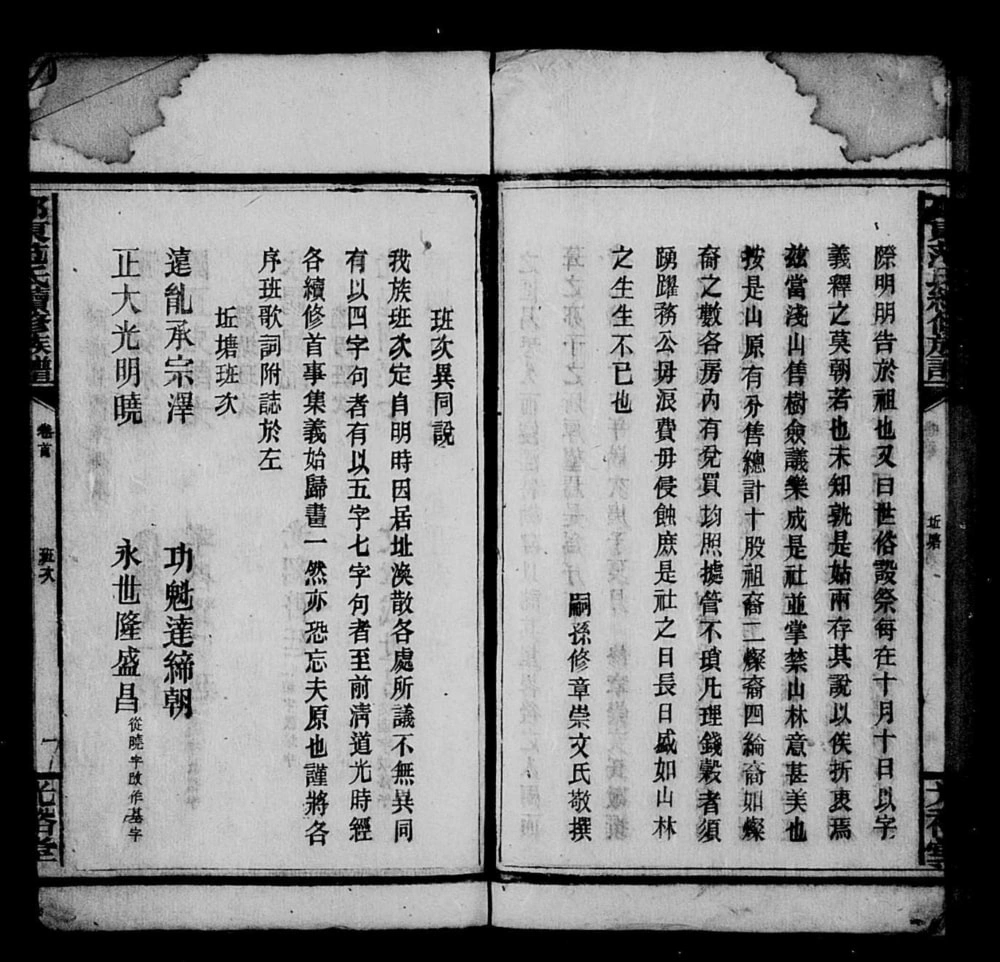 際明明告於祖也又曰世俗設祭每在十月十日以字
義釋之莫朝若也未知孰是姑兩存其說以俟折衷焉
玆當淺山售樹僉議樂成是社並掌禁山林意甚美也
按是山原有分售總計十股祖裔二燦裔四綸裔如燦
裔之數各房內有兌買均照據管不瑣凡理錢穀者須
踴躍務公毋浪費毋侵蝕庶是社之日長日盛如山林
之生生不已也
嗣孫修章崇交氏敬撰
坵塘
班次異同說
我族班次定自明時因居址渙散各處所議不無異同
有以四字句者有以五字七字句者至前淸道光時經
各續修首事集義始歸畫一然亦恐忘夫原也謹將各
序班歌詞附誌於左
坵塘班次
遠能承宗澤 功魁達締朝
正大光明曉 永世隆盛昌 從曉字改作基字
氏續修族譜
卷首
班次
光裕堂